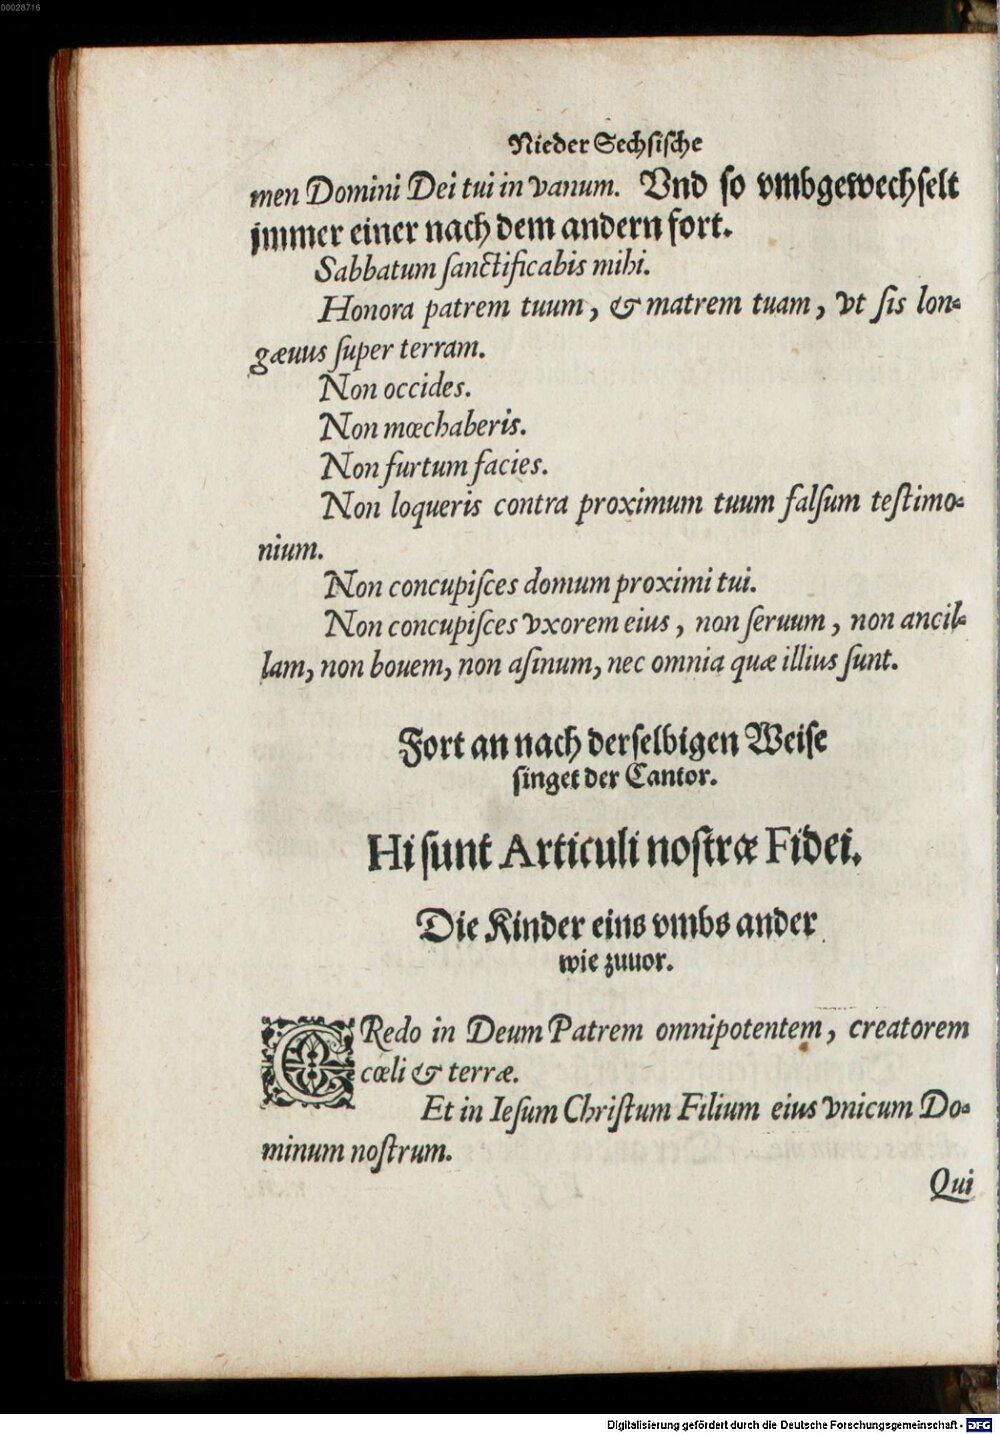 00028716
Nieder Sechsische
men Domini Dei tui in vanum. Vnd so vmbgewechselt
jmmer einer nach dem andern fort.
Sabbatum ſanctificabis mihi.
Honora patrem tuum, & matrem tuam, vt ſis lon⸗
gæuus ſuper terram.
Non occides.
Non mœchaberis.
Non furtum facies.
Non loqueris contra proximum tuum falſum teſtimo⸗
nium.
Non concupiſces domum proximi tui.
Non concupiſces vxorem eius, non ſeruum, non ancil⸗
lam, non bouem, non aſinum, nec omnia quæ illius ſunt.
Fort an nach derſelbigen Weiſe
ſinget der Cantor.
Hi ſunt Articuli noſtræ Fidei.
Die Kinder eins vmbs ander
wie zuuor.
CRedo in Deum Patrem omnipotentem, creatorem
cœli & terræ.
Et in Ieſum Chriſtum Filium eius vnicum Do⸗
minum noſtrum.
Qui
Digitalisierung gefördert durch die Deutsche Forschungsgemeinschaft - DFG